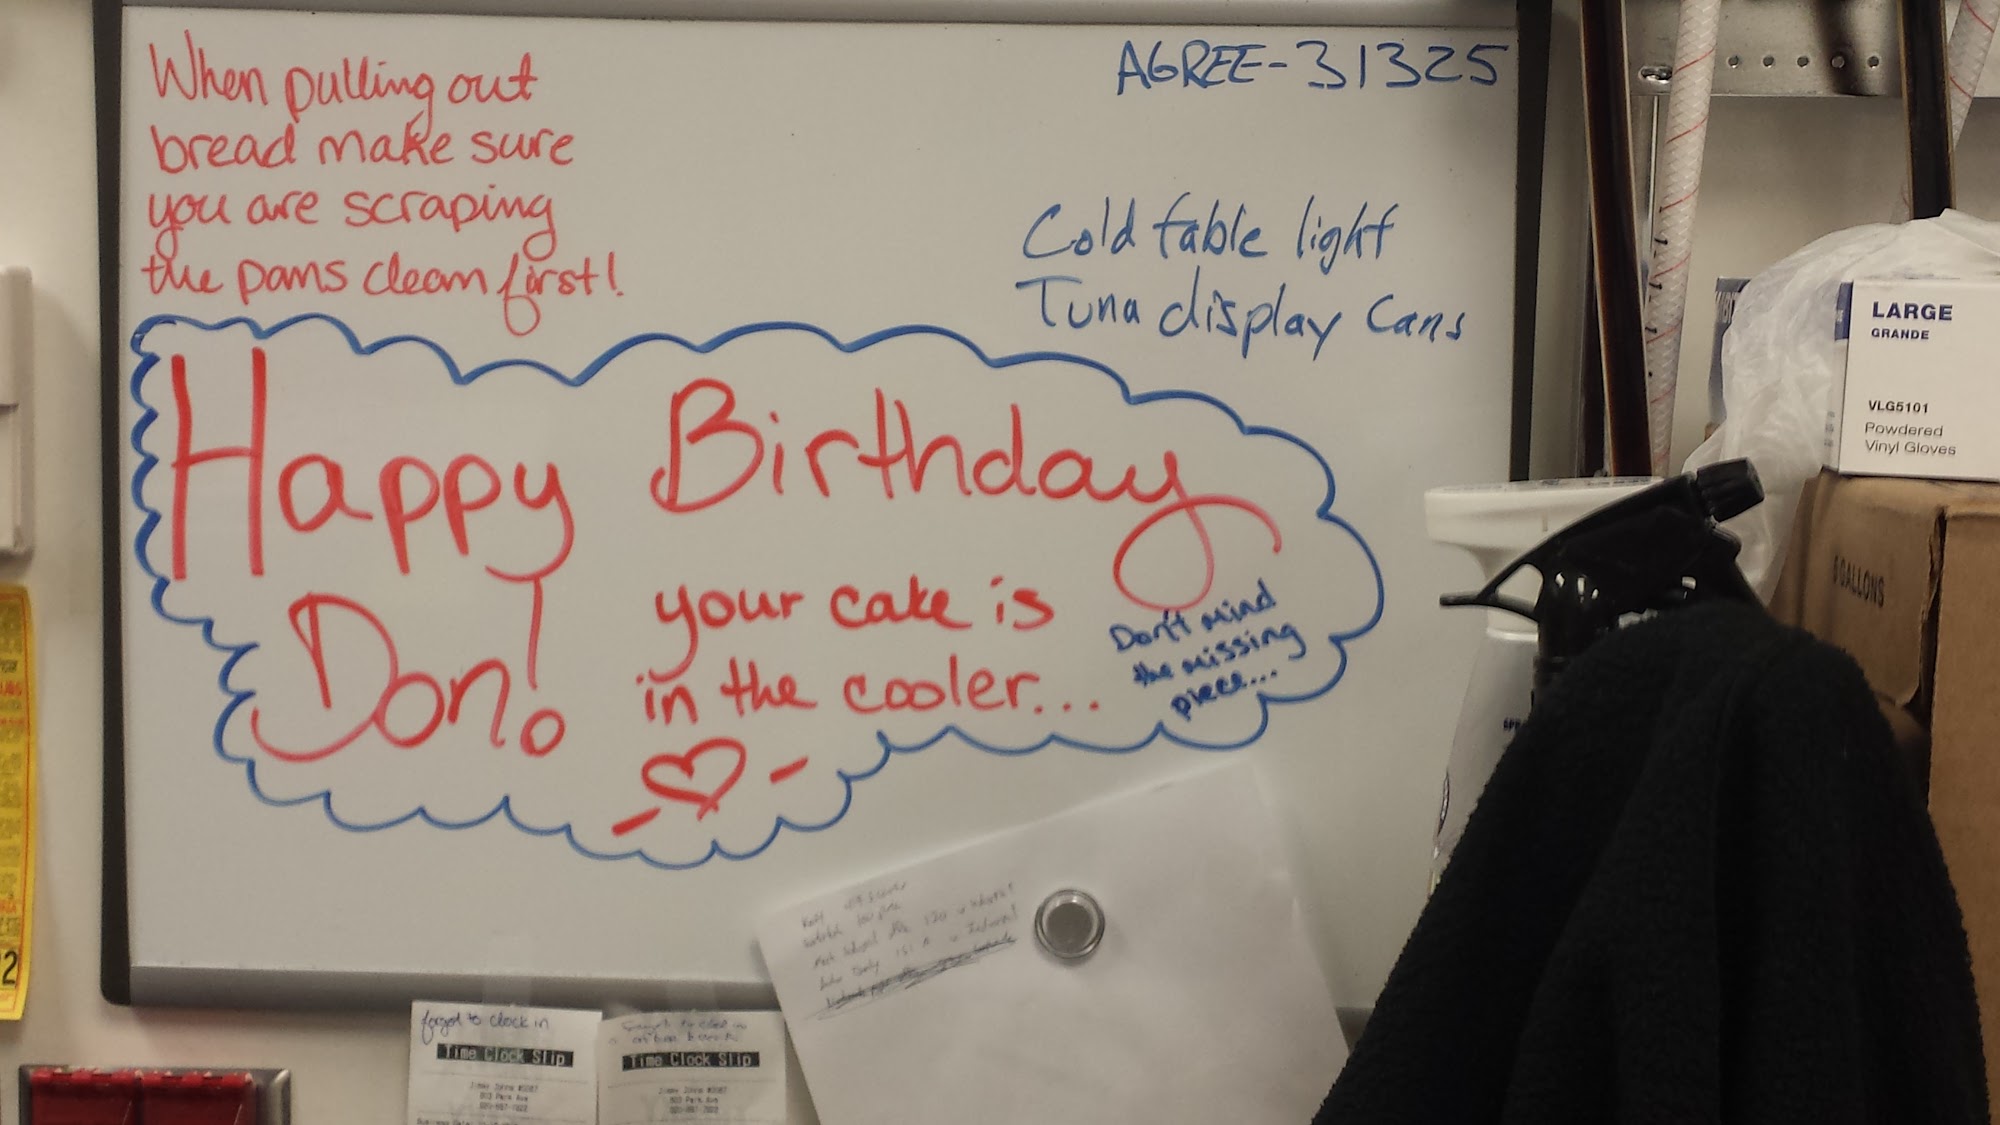 When pulling out
bread make sure
you are scraping
the pans clean first!
AGREE-31325
Cold table light
Tuna display cans
Happy Birthday
Don!
your cake is
in the cooler...
Don't mind
the missing
piece...
LARGE
GRANDE
VLG5101
Powdered
Vinyl Gloves
GALLONS
forgot to clock in
Time Clock Slip
Time Clock Slip